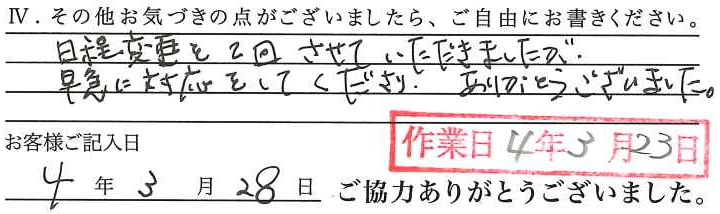 Ⅳ．その他お気づきの点がございましたら、ご自由にお書きください。
日程変更を2回させていただきましたが、
早急に対応をしてくださり、ありがとうございました。
お客様ご記入日
作業日 4年3月23日
4年3月28日 ご協力ありがとうございました。